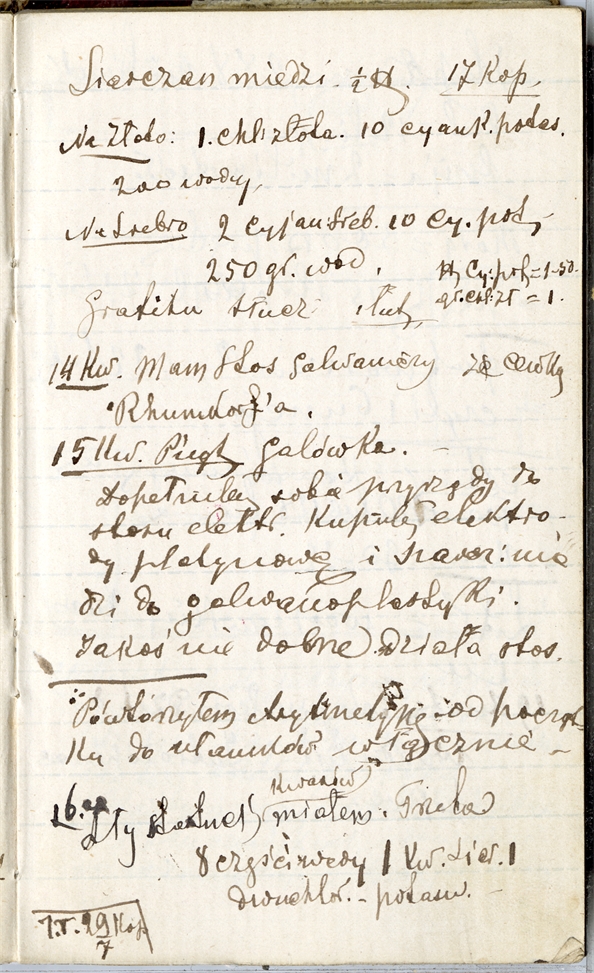 Siarczan miedzi. ½ ℔. 17 Kop.
Na Złoto: 1. chl: złota. 10 cyank. potas.
200 wody,
Na Srebro 2 Cyjan: sreb. 10 Cy. pot,
250 gr. wod,
℔ Cy: pot = 1-50.
gr. chl: zł = 1.
Grafitu tłucz:
14 Kw. Mam Stos galwaniczny za cewkę
Rhumkorff'a.
15 Kw. Piąt, galówka.
sobie przyrzędy do
stosu elektr. Kupuję elektro-
dy platynowe i
dzi do galwanoplastyki.
Jakoś nie dobrze działa stos.
Powtórzyłem Arytmetykę od począt-
ku do ułamków włącznie -
16.
Kwasów
miałem.
8 części wody 1 Kw. Siar. 1
dwuchro. - potasu. -
1.r. 29 Kop
7